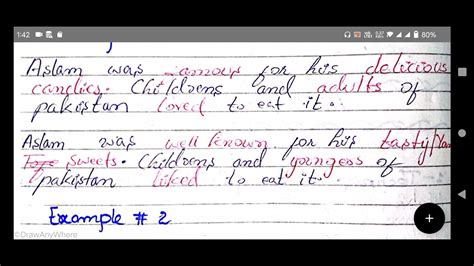 1:42
80%
Aslam was famous for his delicious
candies. Childrens and adults of
pakistan loved to eat it.
Aslam was well known for his tasty
sweets. Childrens and youngess of
pakistan liked to eat it.
Example # 2
©DrawAnyWhere